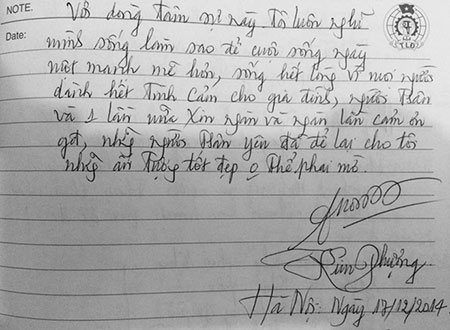 NOTE.
Date:
TLĐ
Với dòng tâm sự này tôi luôn nghĩ
mình sống làm sao để cuộc sống ngày
một mạnh mẽ hơn, sống hết lòng vì mọi người
dành hết tình cảm cho gia đình, người thân
và 1 lần nữa xin ngàn vạn ngàn lần cảm ơn
gđ, nhg người thân yêu đã để lại cho tôi
nhg ấn tượng tốt đẹp o thể phai mờ.
Kim Phượng
Hà Nội: Ngày 17/12/2014